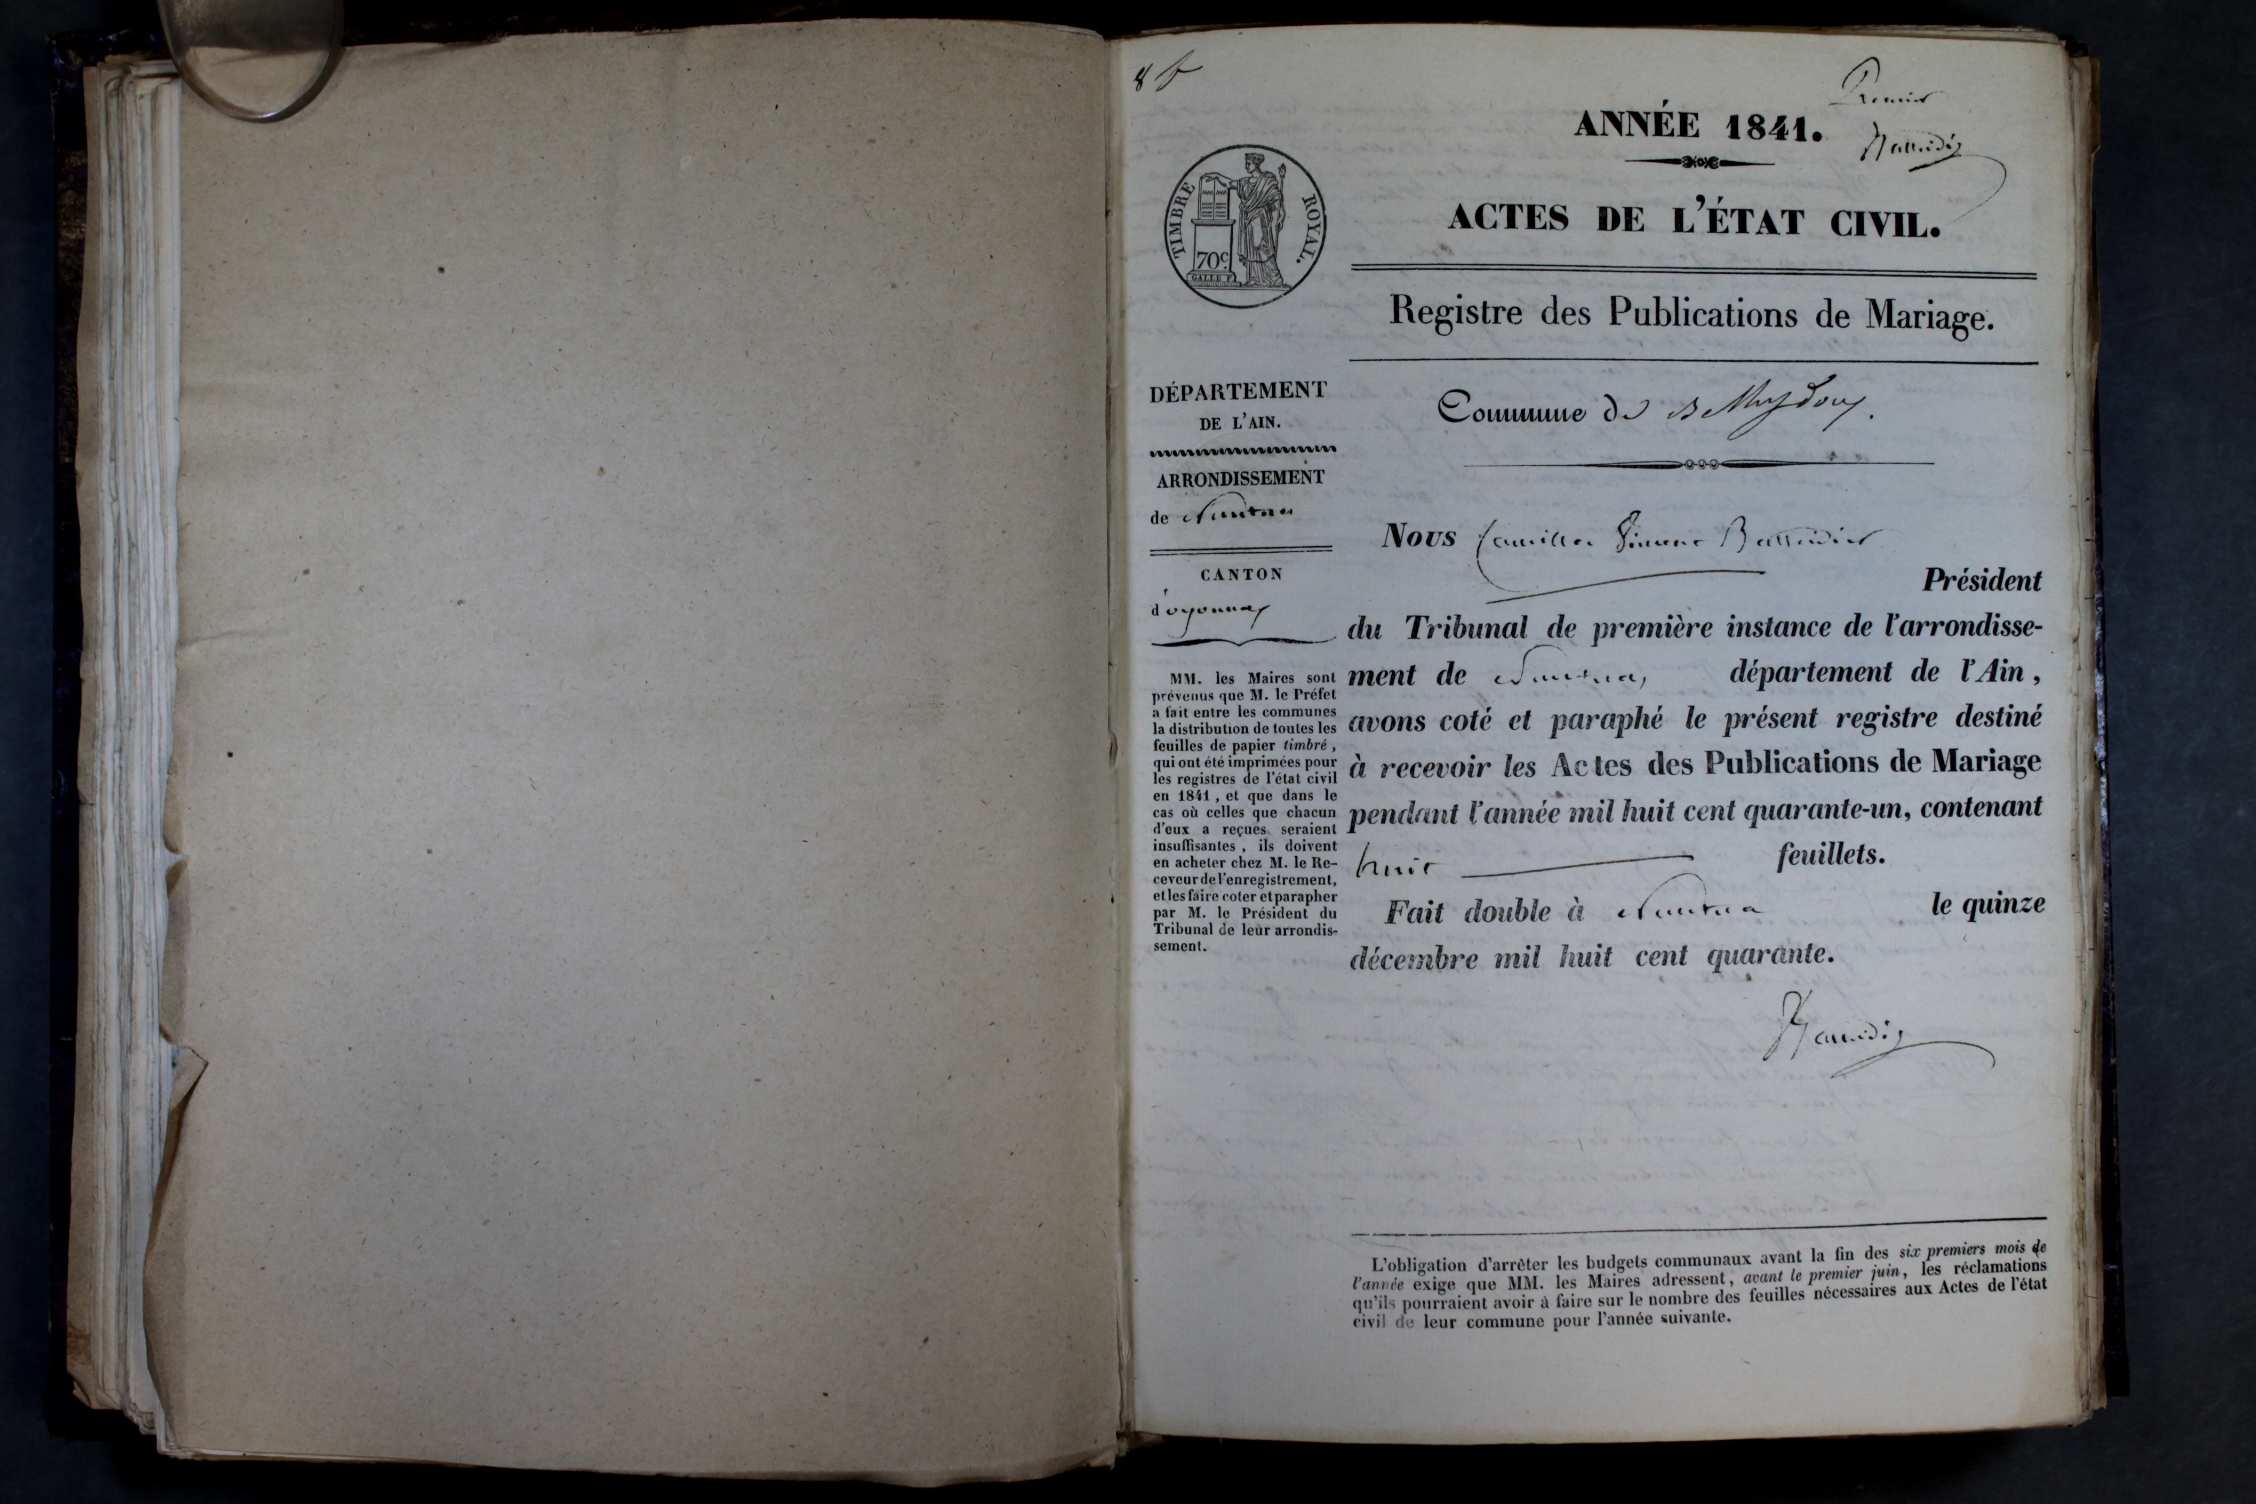 8 f
Premier
ANNÉE 1841.
TIMBRE ROYAL.
70c
GALLE F.
ACTES DE L'ÉTAT CIVIL.
Registre des Publications de Mariage.
DÉPARTEMENT
DE L'AIN.
ARRONDISSEMENT
de Nantua
CANTON
d'oyonnax
MM. les Maires sont
prévenus que M. le Préfet
a fait entre les communes
la distribution de toutes les
feuilles de papier timbré,
qui ont été imprimées pour
les registres de l'état civil
en 1841, et que dans le
cas où celles que chacun
d'eux a reçues seraient
insuffisantes, ils doivent
en acheter chez M. le Re-
ceveur de l'enregistrement,
et les faire coter et parapher
par M. le Président du
Tribunal de leur arrondis-
sement.
Commune de Belleydoux.
Nous Camille
Président
du Tribunal de première instance de l'arrondisse-
ment de Nantua, département de l'Ain,
avons coté et paraphé le présent registre destiné
à recevoir les Actes des Publications de Mariage
pendant l'année mil huit cent quarante-un, contenant
huit feuillets.
Fait double à Nantua le quinze
décembre mil huit cent quarante.
L'obligation d'arrêter les budgets communaux avant la fin des six premiers mois de
l'année exige que MM. les Maires adressent, avant le premier juin, les réclamations
qu'ils pourraient avoir à faire sur le nombre des feuilles nécessaires aux Actes de l'état
civil de leur commune pour l'année suivante.